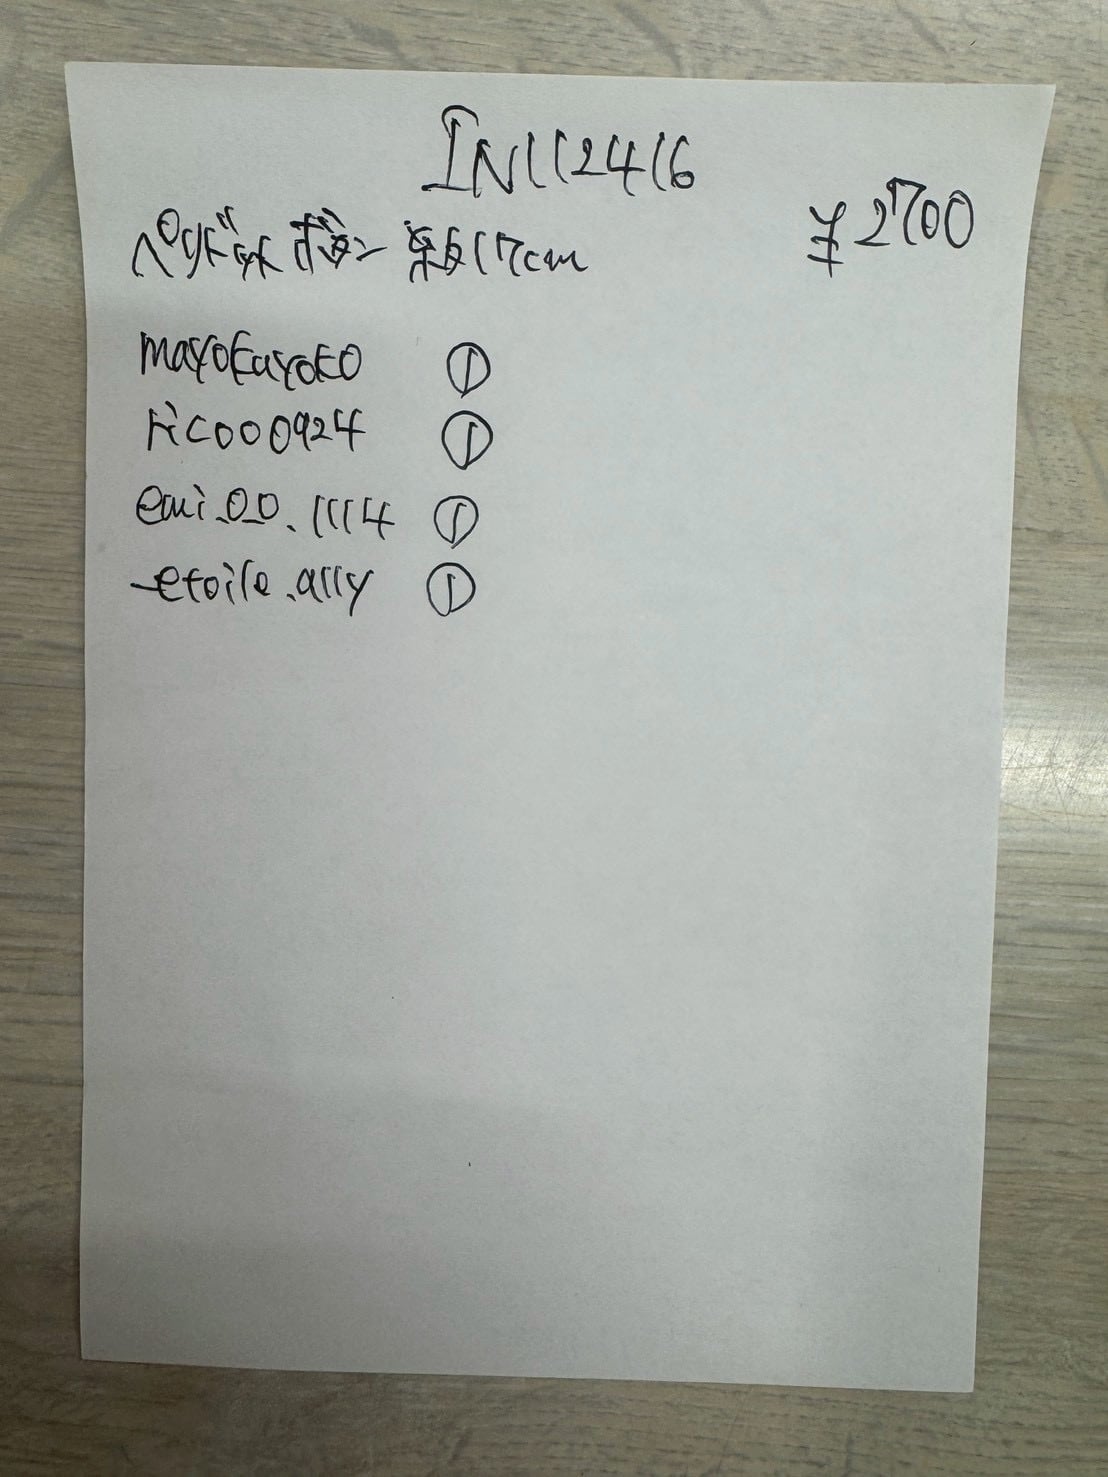 IN112416
¥2700
ボタン 約17cm
mayokayoko ①
ric000924 ①
emi.00.1114 ①
_etoile.ally ①